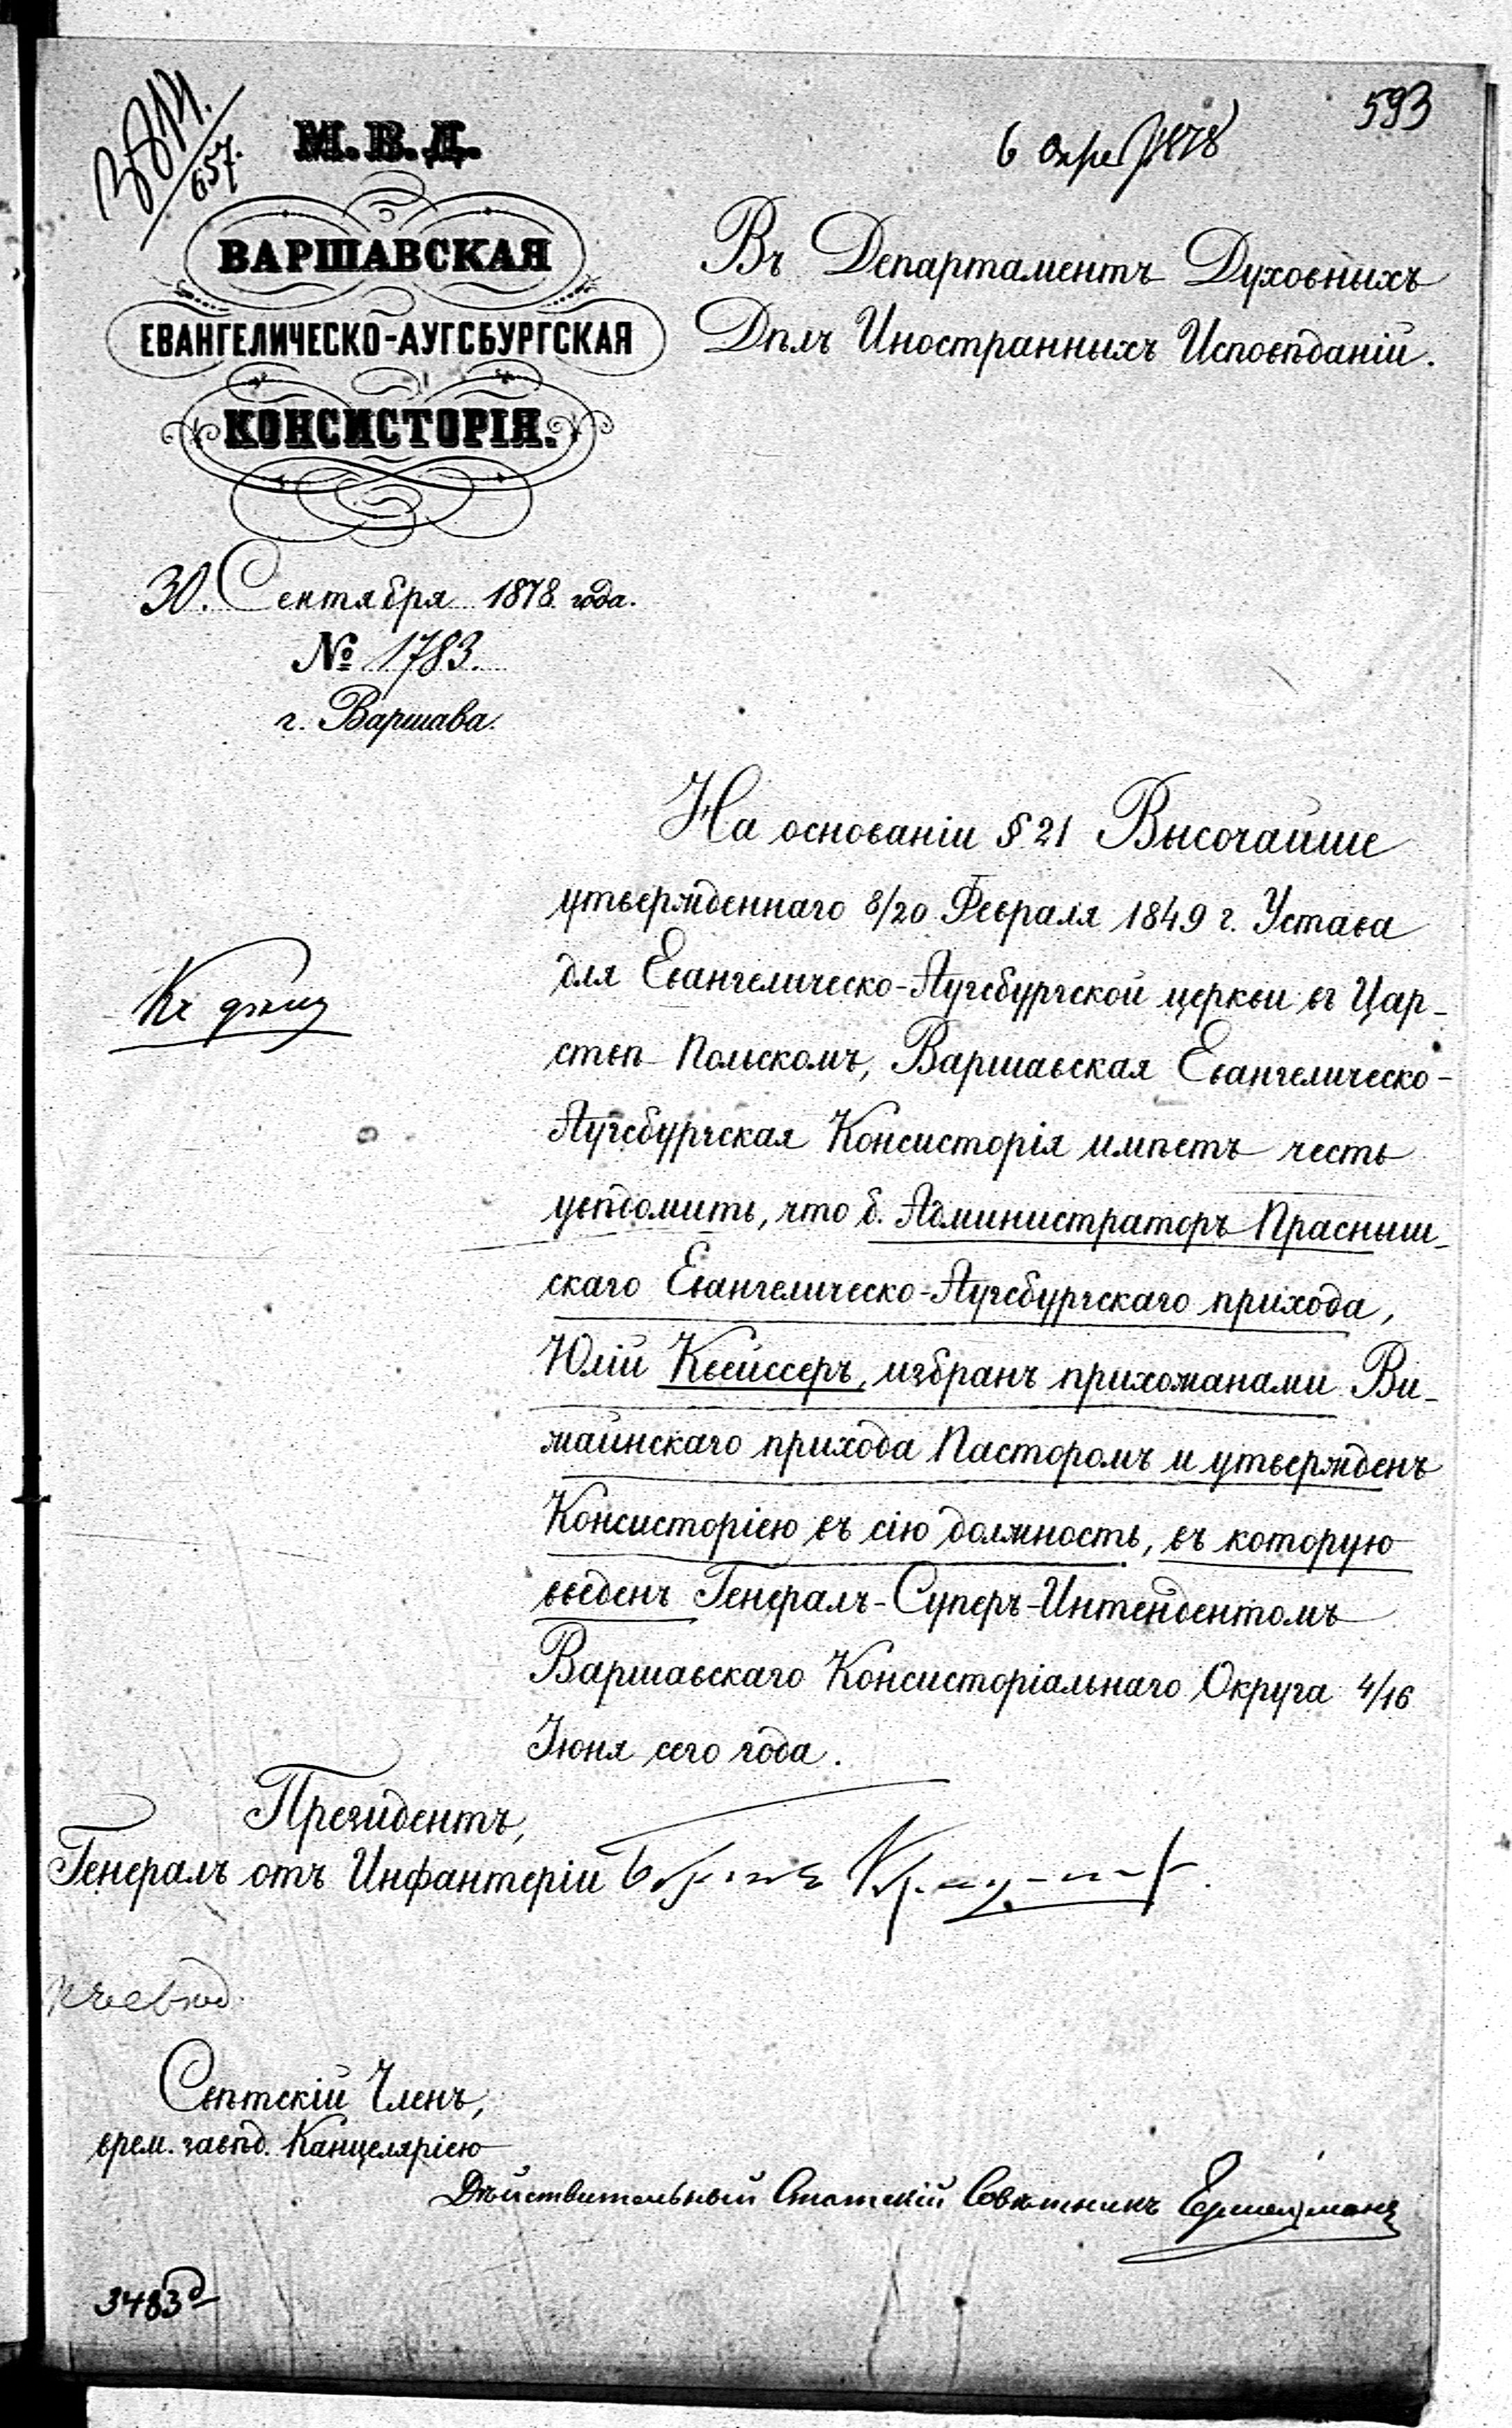 593
657.
М. В. Д.
6 1878
ВАРШАВСКАЯ
ЕВАНГЕЛИЧЕСКО-АУГСБУРГСКАЯ
КОНСИСТОРІЯ.
Въ Департаментъ Духовныхъ
Дѣлъ Иностранныхъ Исповѣданій.
30. Сентября 1878 года.
№ 1783.
г. Варшава.
На основаніи § 21 Высочайше
утвержденнаго 8/20 Февраля 1849 г. Устава
для Евангелическо-Аугсбургской церкви въ Цар-
ствѣ Польскомъ, Варшавская Евангелическо-
Аугсбургская Консисторія имѣетъ честь
увѣдомить, что б. Администраторъ Прасныш-
скаго Евангелическо-Аугсбургскаго прихода,
Юлій Квейссеръ, избранъ прихожанами Ви-
жайнскаго прихода Пасторомъ и утвержденъ
Консисторіею въ сію должность, въ которую
введенъ Генералъ-Суперъ-Интендентомъ
Варшавскаго Консисторіальнаго Округа 4/16
Іюня сего года.
Къ дѣлу
Президентъ,
Генералъ отъ Инфантеріи
Свѣтскій Членъ,
врем. завѣд. Канцеляріею
Дѣйствительный Статскій Совѣтникъ
3483